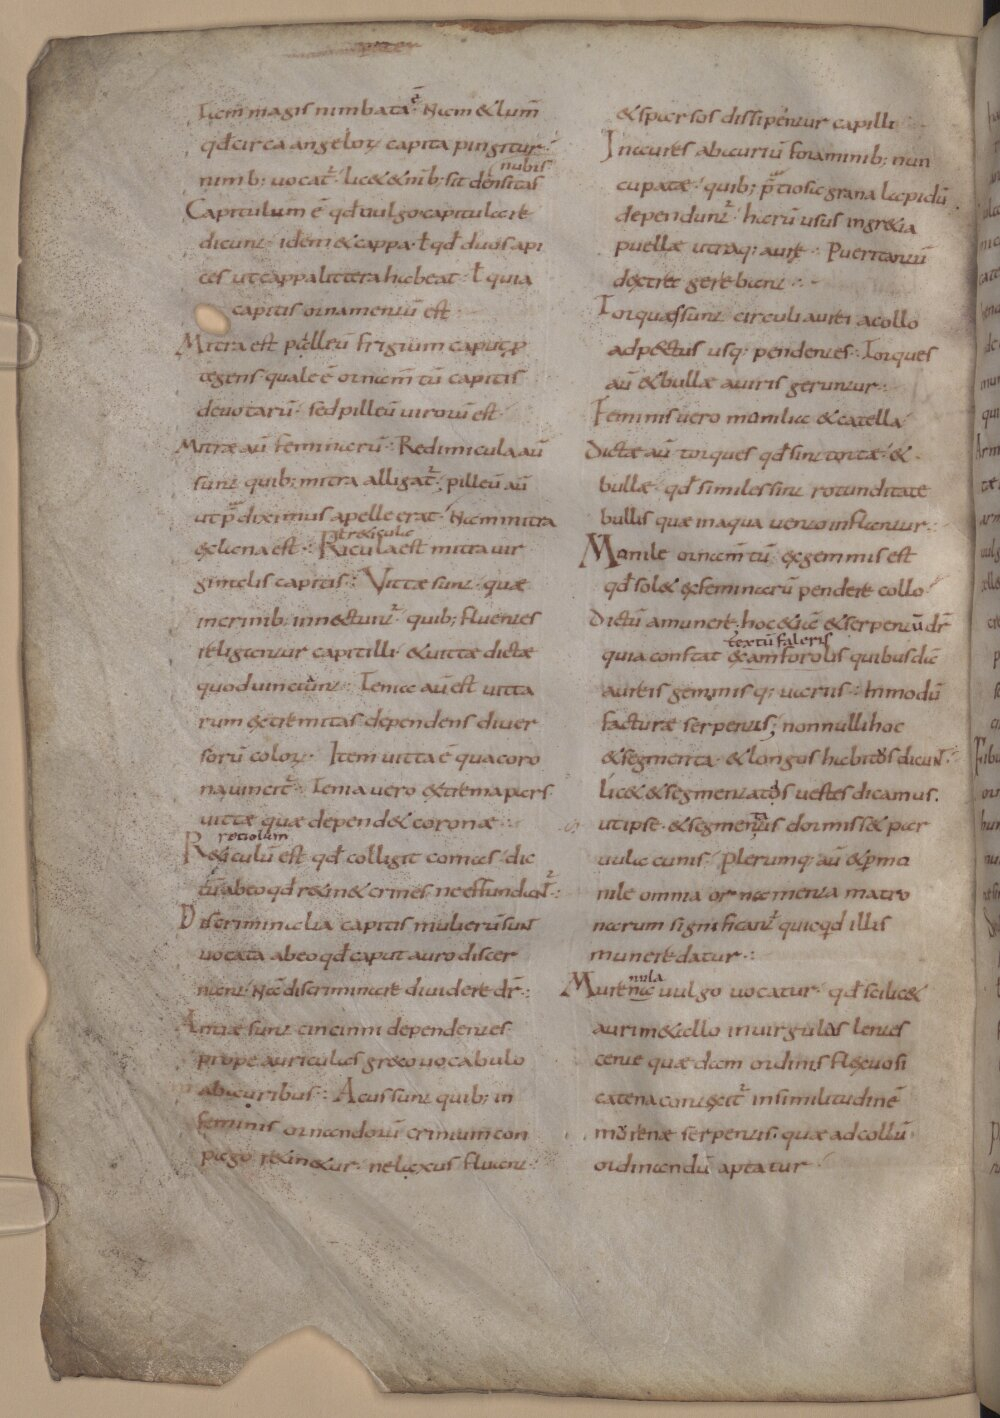 Iam magis nimbata ē. Nam & lum̄
qd̄ circa angeloꝝ capita pingitur
nubis
nimb; uocat̄. lic& & nīb; sit densitas
Capitulum ē qd̄ uulgo capitulare
dicunt. idem & cappa. ł qd̄ duos api
ces ut cappa littera habeat. ł quia
capitis ornamentū est
Mitra est pilleū frigium caput ꝓ
tegens. quale ē ornam̄tū capitis
deuotarū. sed pilleū uirorū est.
Mitræ aū feminarū. Redimicula aū
sunt quib; mitra alligat̄. pilleū aū
ut p̄diximus apelle erat. Nam mitra
exlana est. Ricula est mitra uir
reticula
ginalis capitis. Vittæ sunt quæ
incrinib; innectunt̄. quib; fluentes
religantur capitilli. & uittæ dictæ
quod uinciunt. Tenia aū est uitta
rum extremitas dependens diuer
sorū coloꝝ. Item uitta ē qua coro
na uincit̄. Tenia uero extrema pars
uittæ quæ depend& coronæ
retiolum
R&iculū est qd̄ colligit comas. dic
tū abeo qd̄ r&in& crines. ne effundant̄.
Discriminalia capitis mulierū sunt
uocata abeo qd̄ caput auro discer
nant. Nā discriminare diuidere dr̄.
Antiæ sunt cincinni dependentes
prope auriculas. greco uocabulo
abauribus. Acus sunt quib; in
feminis ornandorū crinium con
pago r&in&ur. ne laxus fluant
& sparsos dissipentur capilli
Inaures abauriū foraminib; nun
cupatæ. quib; p̄tiosa grana lapidū
dependunt̄. harū usus ingr&ia
puellæ utraq; aure. Pueri tantū
dextra gerebant.
Torquæs sunt circuli aurei acollo
adp&ctus usq; pendentes. Torques
aū & bullæ auiris geruntur.
Feminis uero monilia & catella
Dictæ aū torques qd̄ sint tortæ. &
bullæ. qd̄ similes sint rotunditate
bullis quæ inaqua uento inflantur.
Monile ornam̄tū exgemmis est
qd̄ sol& exfeminarū pendere collo
Dictū amunere. hoc &iā & serpentū dr̄
textū faleris
quia constat examforolis quibusdā
aureis gemmisq; uariis. Inmodū
facturæ serpentis; nonnulli hoc
& segmenta. & longos habitos dicunt.
lic& & segmentatos uestes dicamus.
ut ipse. & segmentatis dormiss& par
uula cunis. Plerumq; aū & ꝑ mo
nile omnia ornamenta matro
narum significant̄ quicqd̄ illis
munere datur.
nula
Murena uulgo uocatur. qd̄ scilic&
auri m&allo inuirgulas lentes
cente quædam ordinis flexuosi
catena contexit̄ insimilitudinē
morenæ serpentis. quæ ad collū
ordinandū aptatur